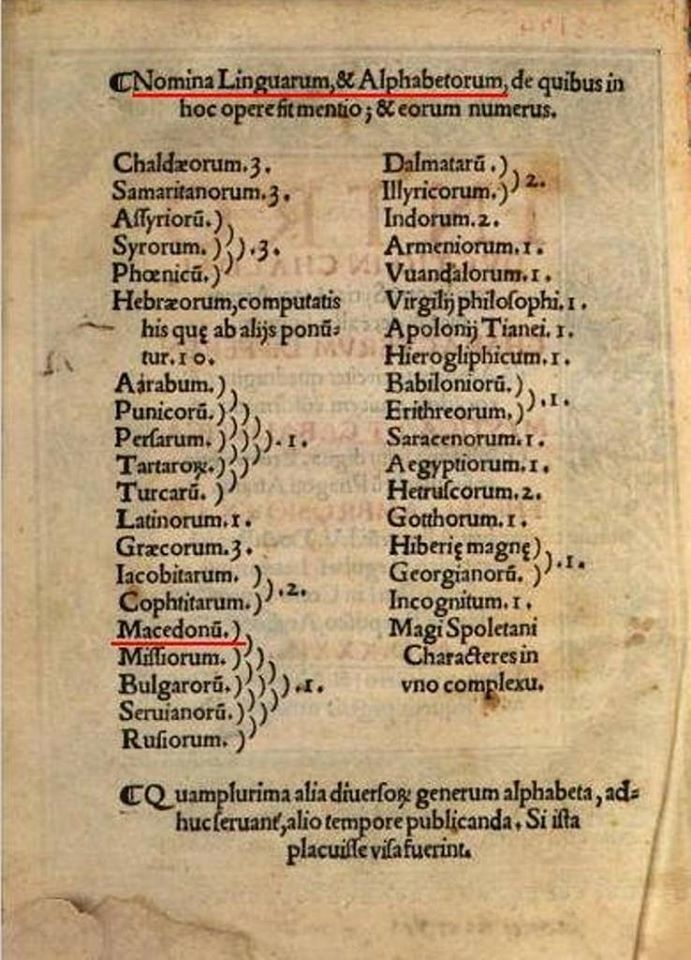 ☾Nomina Linguarum,& Alphabetorum, de quibus in
hoc opere fit mentio; & eorum numerus.
Chaldæorum.3.
Samaritanorum.3.
Aſſyriorū.)
Syrorum. )).3.
Phœnicū.)
Hebræorum,computatis
his quę ab alijs ponū⸗
tur.10.
Aarabum.)
Punicorū.))
Perſarum.))).1.
Tartaroꝝ.))
Turcarū. )
Latinorum.1.
Græcorum.3.
Iacobitarum. )
Cophtitarum.) .2.
Macedonū.)
Miſſiorum. ))
Bulgarorū.))).1.
Seruianorū.))
Ruſiorum. )
Dalmatarū .)
Illyricorum.) 2.
Indorum.2.
Armeniorum.1.
Vuandalorum.1.
Virgilij philoſophi.1.
Apolonij Tianei.1.
Hierogliphicum.1.
Babiloniorū.)
Erithreorum.) .1.
Saracenorum.1.
Aegyptiorum.1.
Hetruſcorum.2.
Gotthorum.1.
Hiberię magnę)
Georgianorū. ) .1.
Incognitum.1.
Magi Spoletani
Characteres in
vno complexu.
☾Quamplurima alia diuerſoꝝ generum alphabeta, ad⸗
huc ſeruant̃,alio tempore publicanda. Si iſta
placuiſſe viſa fuerint.